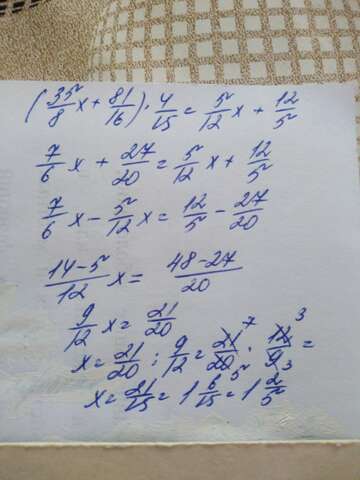 (35/8 x + 81/16) · 4/15 = 5/12 x + 12/5
7/6 x + 27/20 = 5/12 x + 12/5
7/6 x - 5/12 x = 12/5 - 27/20
14-5/12 x = 48-27/20
9/12 x = 21/20
x = 21/20 : 9/12 = 21 7/20 5 · 12 3/9 3 =
x = 21/15 = 1 6/15 = 1 2/5